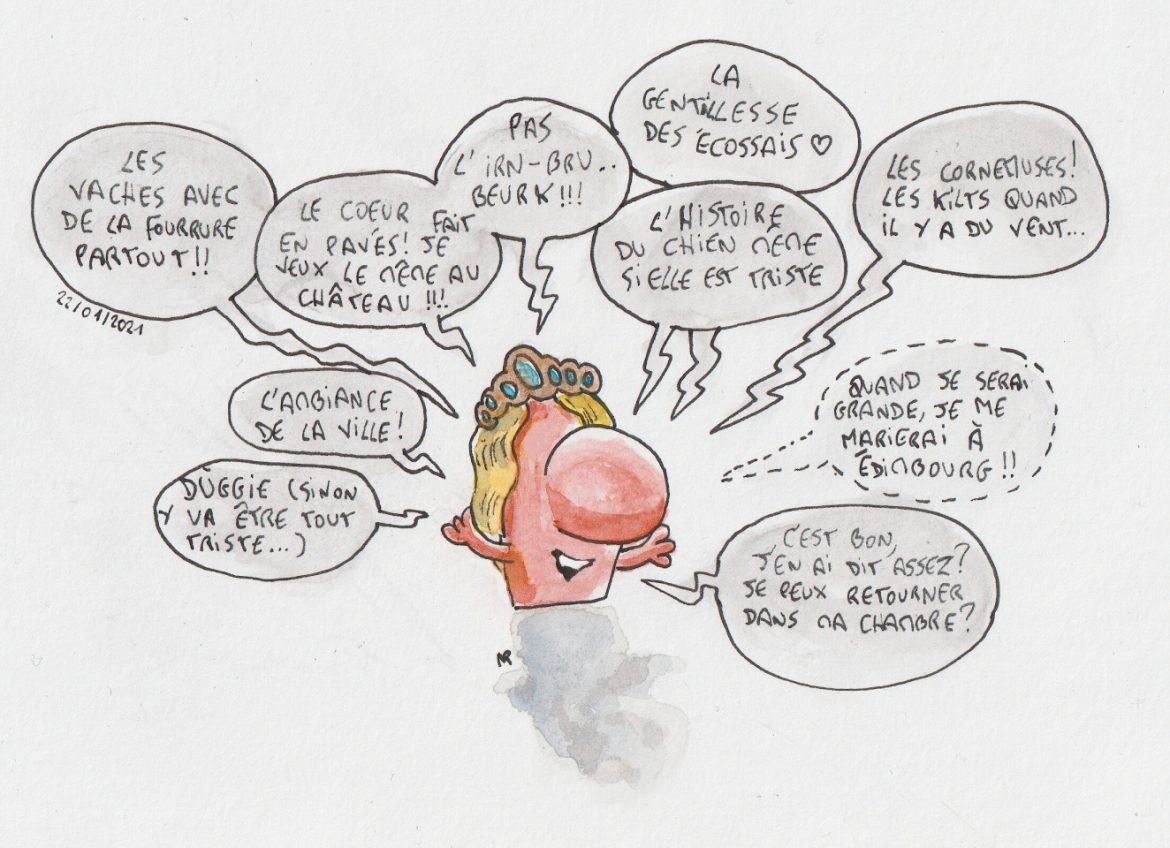 LES
VACHES AVEC
DE LA FOURRURE
PARTOUT!!
22/01/2021
LE COEUR FAIT
EN PAVÉS! JE
VEUX LE MÊME AU
CHÂTEAU !!!
PAS
L'IRN-BRU..
BEURK!!!
LA
GENTILLESSE
DES ÉCOSSAIS ♡
L'HISTOIRE
DU CHIEN MÊME
SI ELLE EST TRISTE
LES CORNEMUSES!
LES KILTS QUAND
IL Y A DU VENT...
L'AMBIANCE
DE LA VILLE!
DUGGIE (SINON
Y VA ÊTRE TOUT
TRISTE...)
QUAND JE SERAI
GRANDE, JE ME
MARIERAI À
ÉDIMBOURG!!
C'EST BON,
J'EN AI DIT ASSEZ?
JE PEUX RETOURNER
DANS MA CHAMBRE?